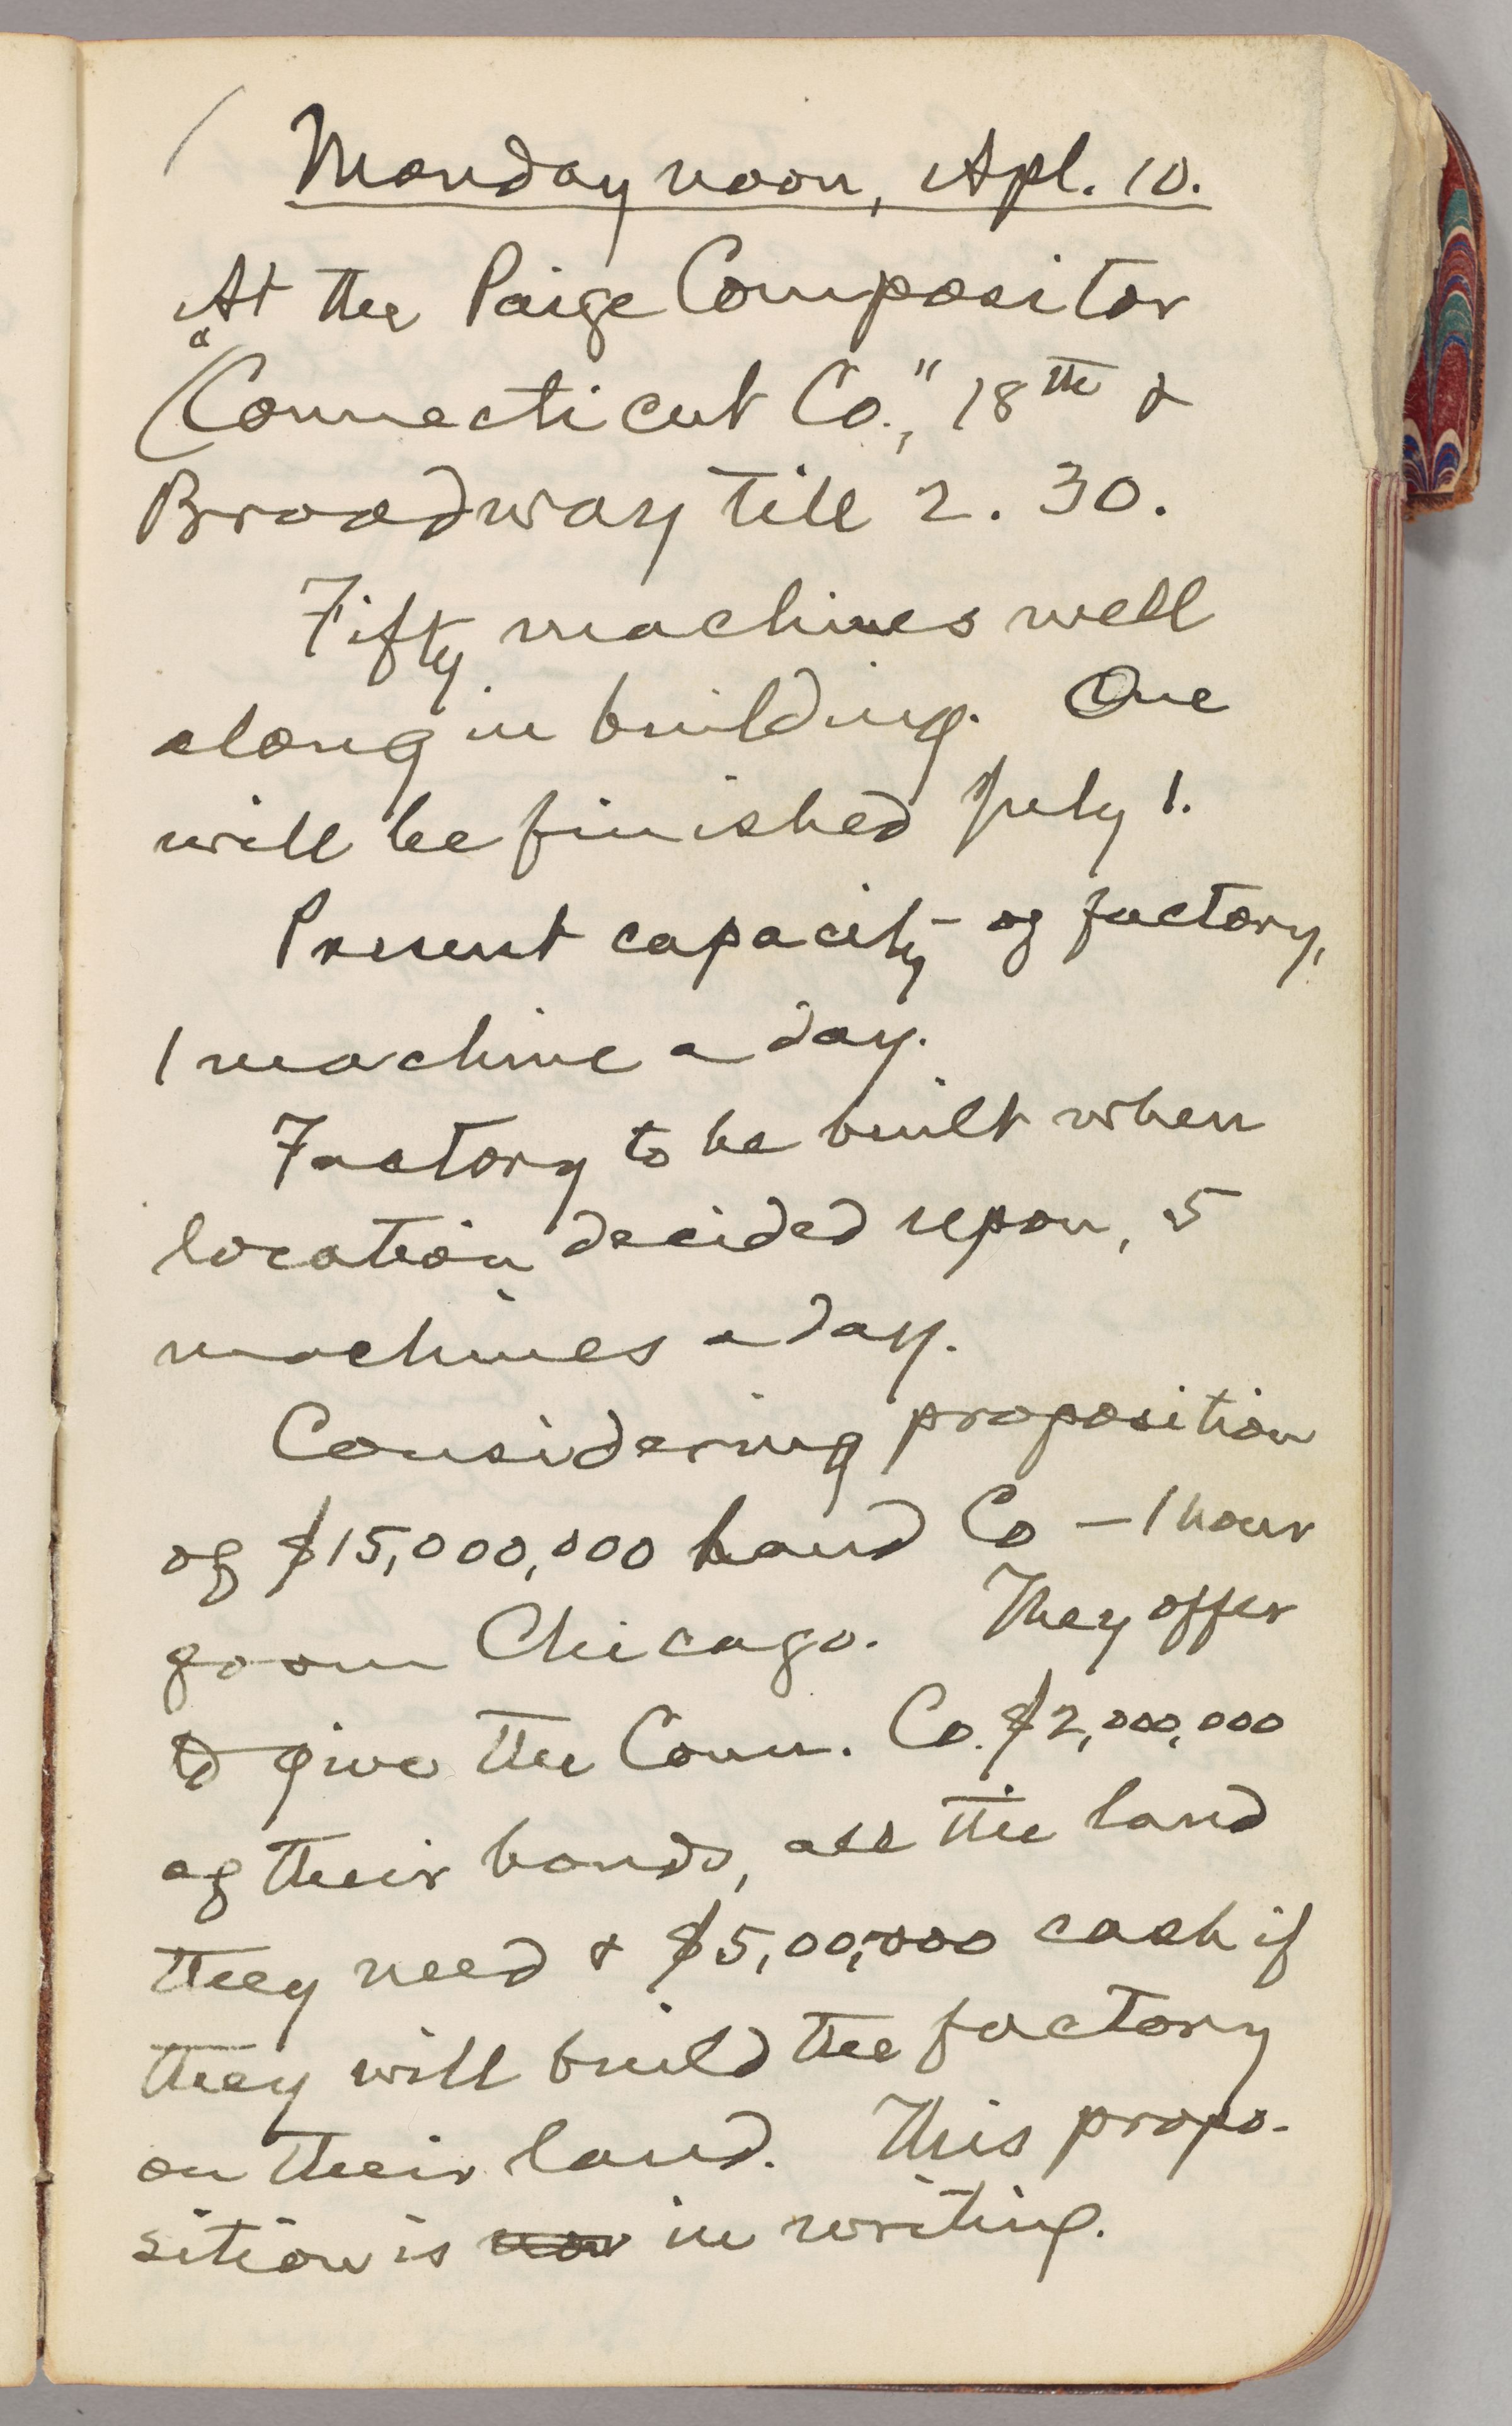 Monday noon, Apl. 10.
At the Paige Compositor
("Connecticut Co.," 18th &
Broadway till 2.30.
Fifty machines well
along in building. One
will be finished July 1.
Present capacity of factory,
1 machine a day.
Factory to be built when
location decided upon, 5
machines a day.
Considering proposition
of $15,000,000 land Co — 1 hour
from Chicago. They offer
to give the Conn. Co. $2,000,000
of their bonds, all the land
they need & $5,00,000 cash if
they will build the factory
on their land. This propo-
sition is now in writing.